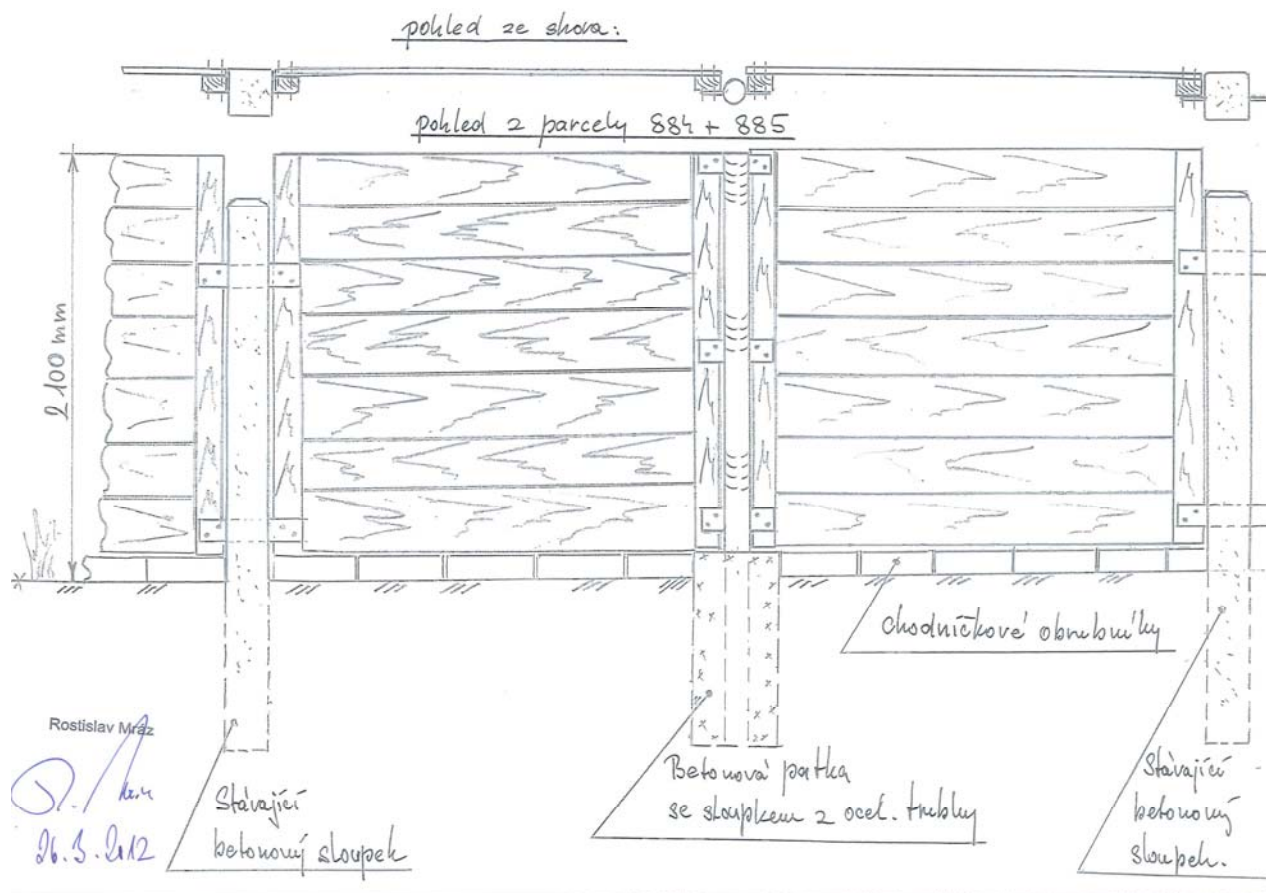 pohled ze shora:
pohled z parcely 884 + 885
2100 mm
chodníčkové obrubníky
Rostislav Mráz
26.3.2012
Stávající
betonový sloupek
Betonová patka
se sloupkem z ocel. trubky
Stávající
betonový
sloupek.